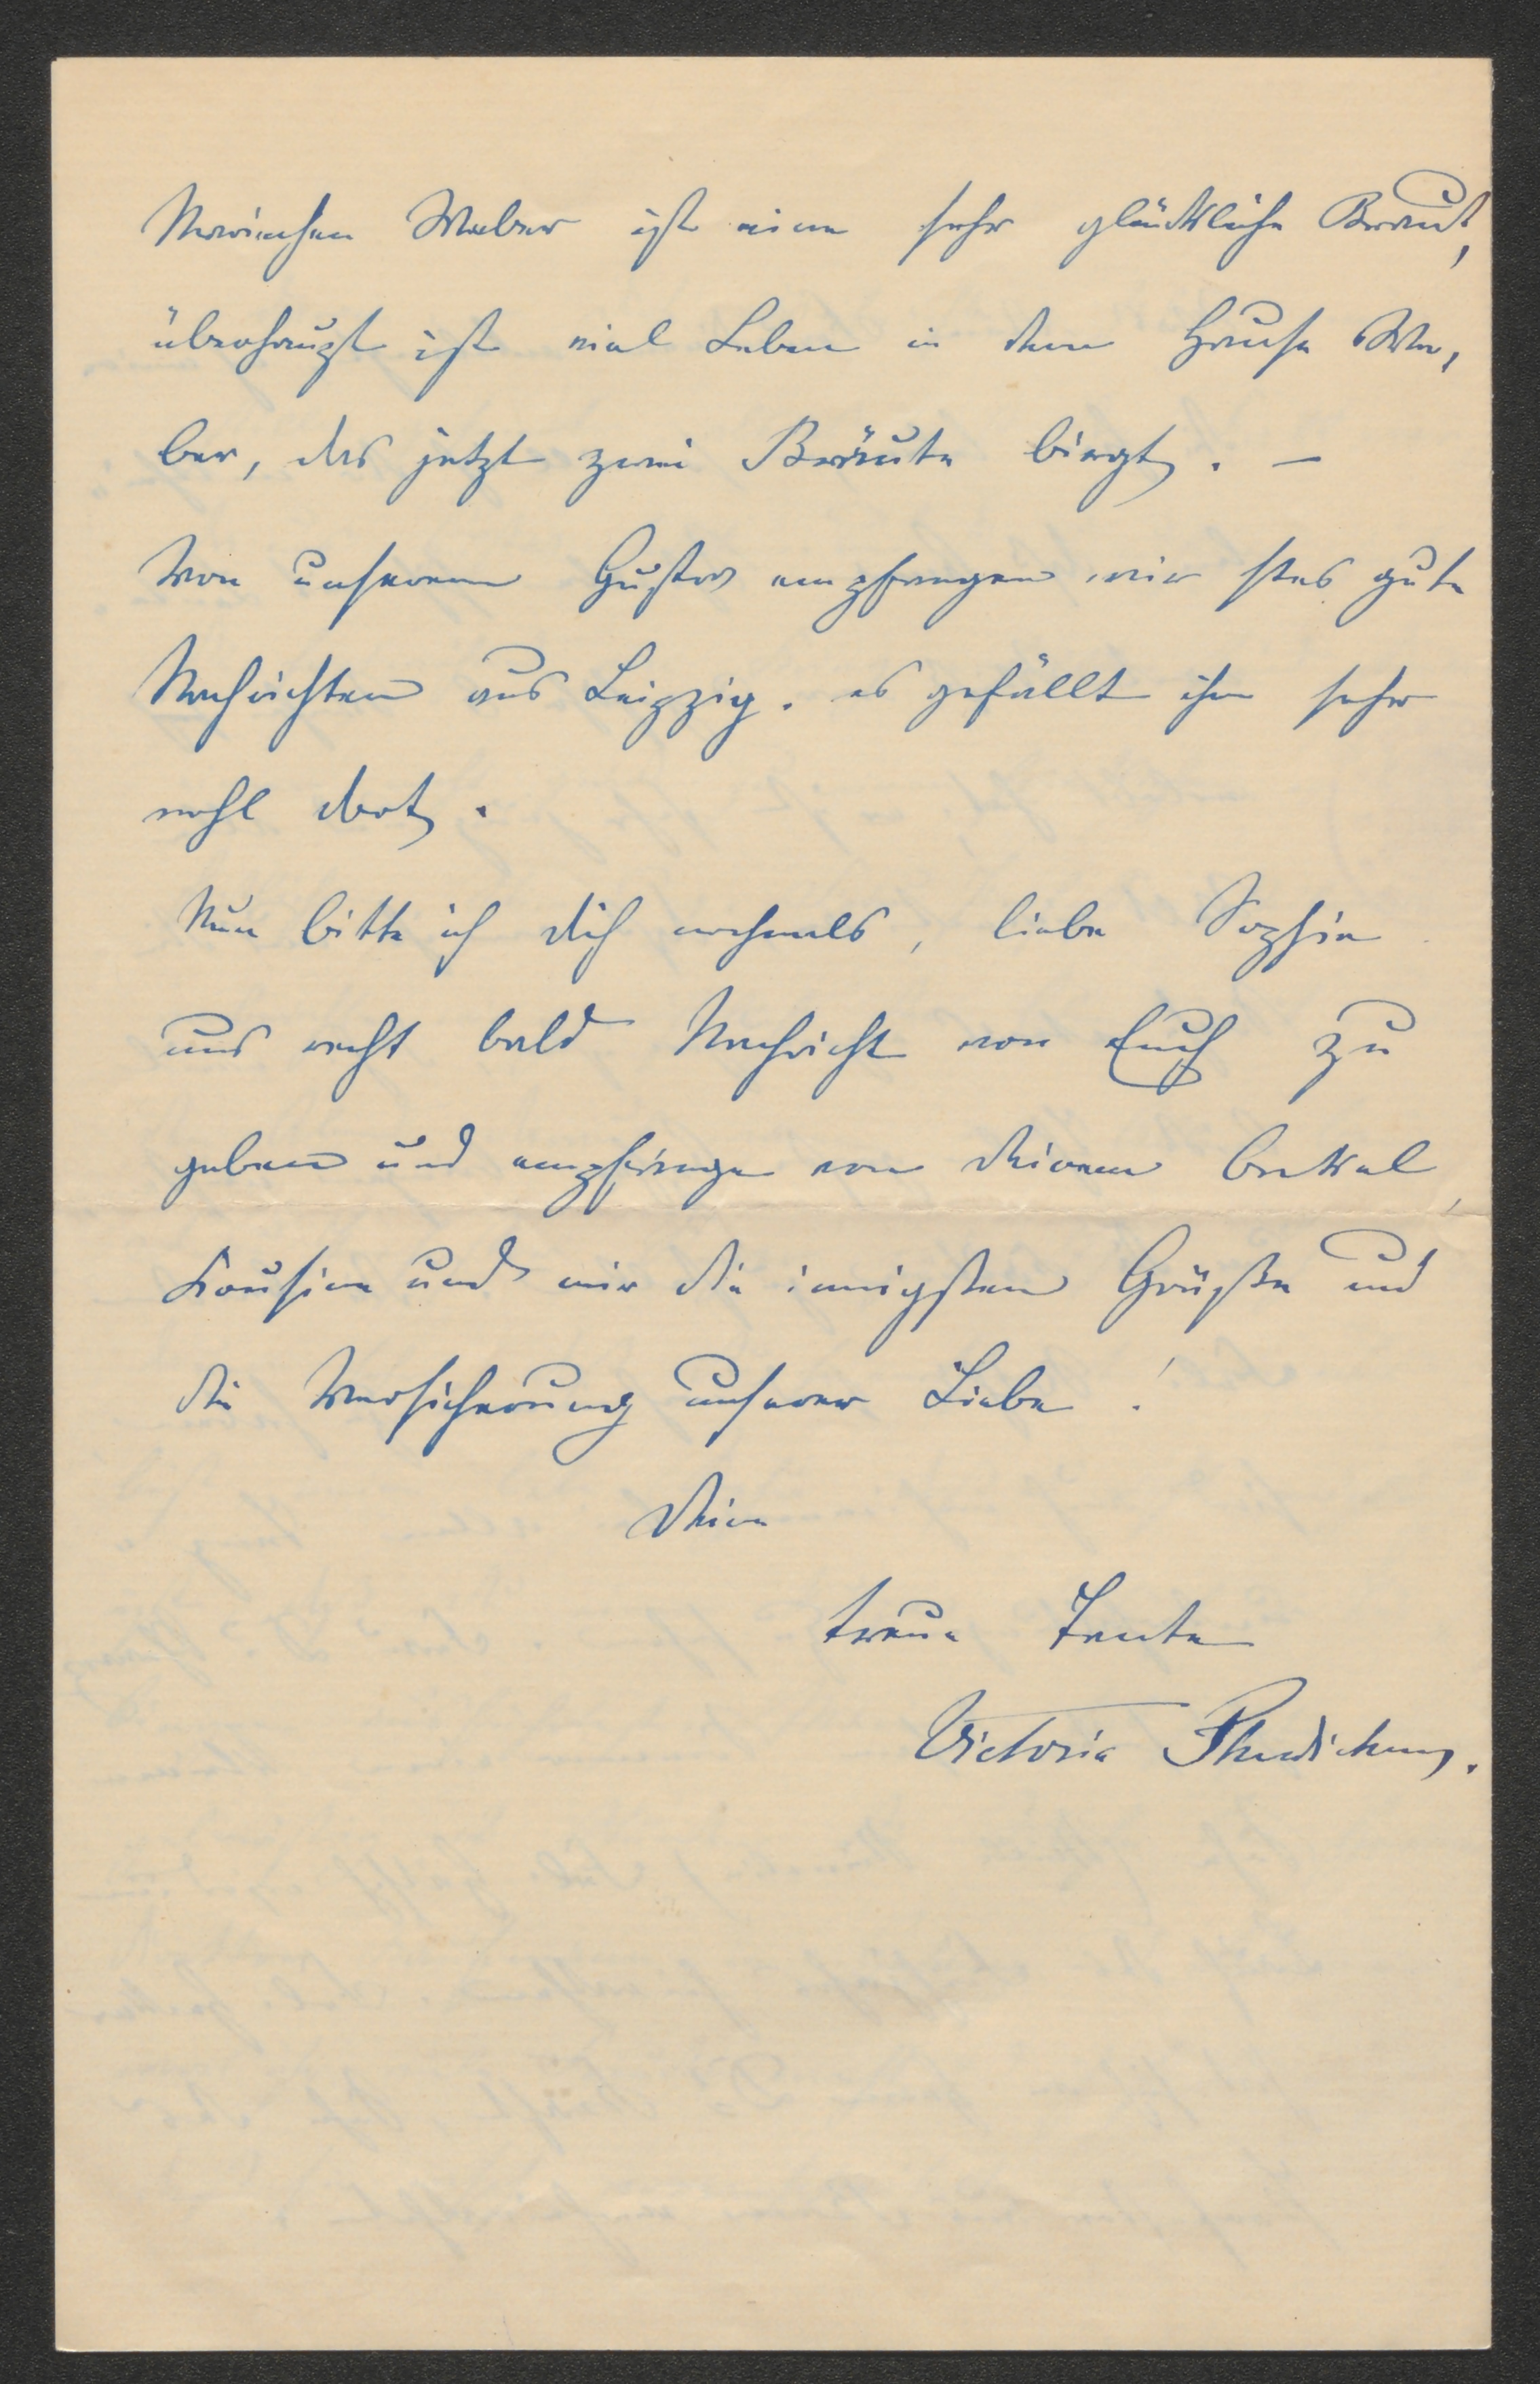 Mariechen Weber ist eine sehr glückliche Braut,
überhaupt ist viel Leben in dem Hause We,
ber, das jetzt zwei Bräute birgt. –
Von unserem Gustav empfangen wir stets gute
Nachrichten aus Leipzig. es gefällt ihm sehr
wohl dort.
Nun bitte ich dich nochmals, liebe Sophie
uns recht bald Nachricht von Euch zu
geben und empfange von deinem Onkel,
Kousine und mir die innigsten Grüße und
die Versicherung unserer Liebe!
Deine
treue Tante
Victoria